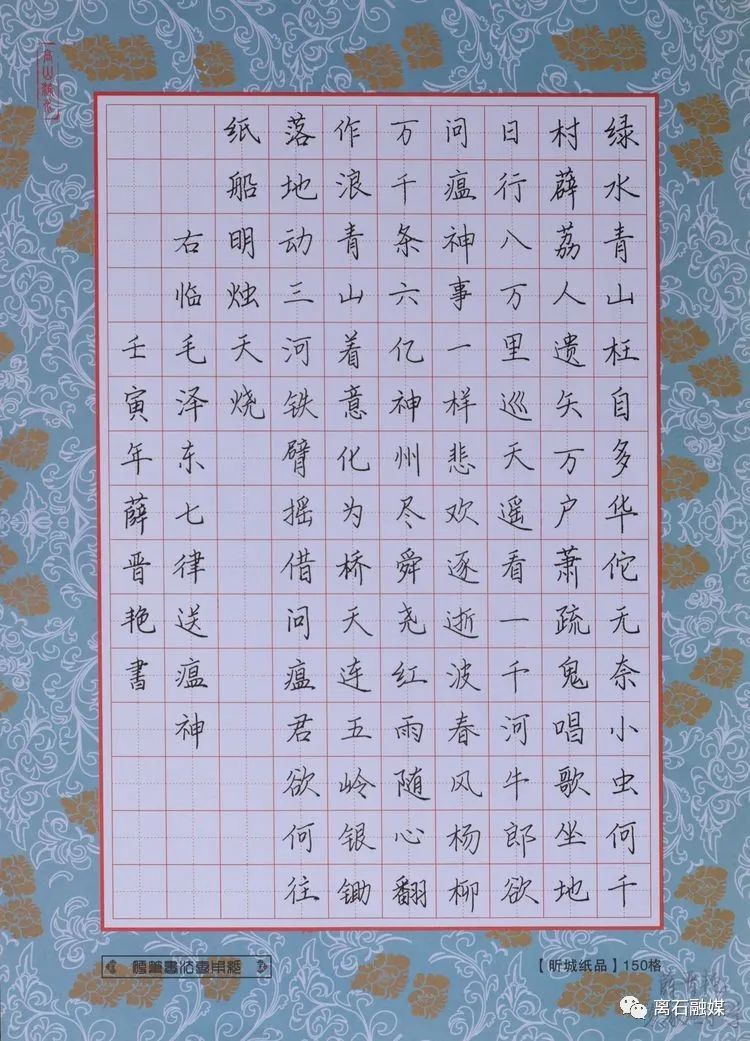 绿水青山枉自多华佗无奈小虫何千
村薜荔人遗矢万户萧疏鬼唱歌坐地
日行八万里巡天遥看一千河牛郎欲
问瘟神事一样悲欢逐逝波春风杨柳
万千条六亿神州尽舜尧红雨随心翻
作浪青山着意化为桥天连五岭银锄
落地动三河铁臂摇借问瘟君欲何往
纸船明烛天烧
右临毛泽东七律送瘟神
壬寅年薛晋艳書
硬筆書法專用紙
【昕城纸品】150格
离石融媒